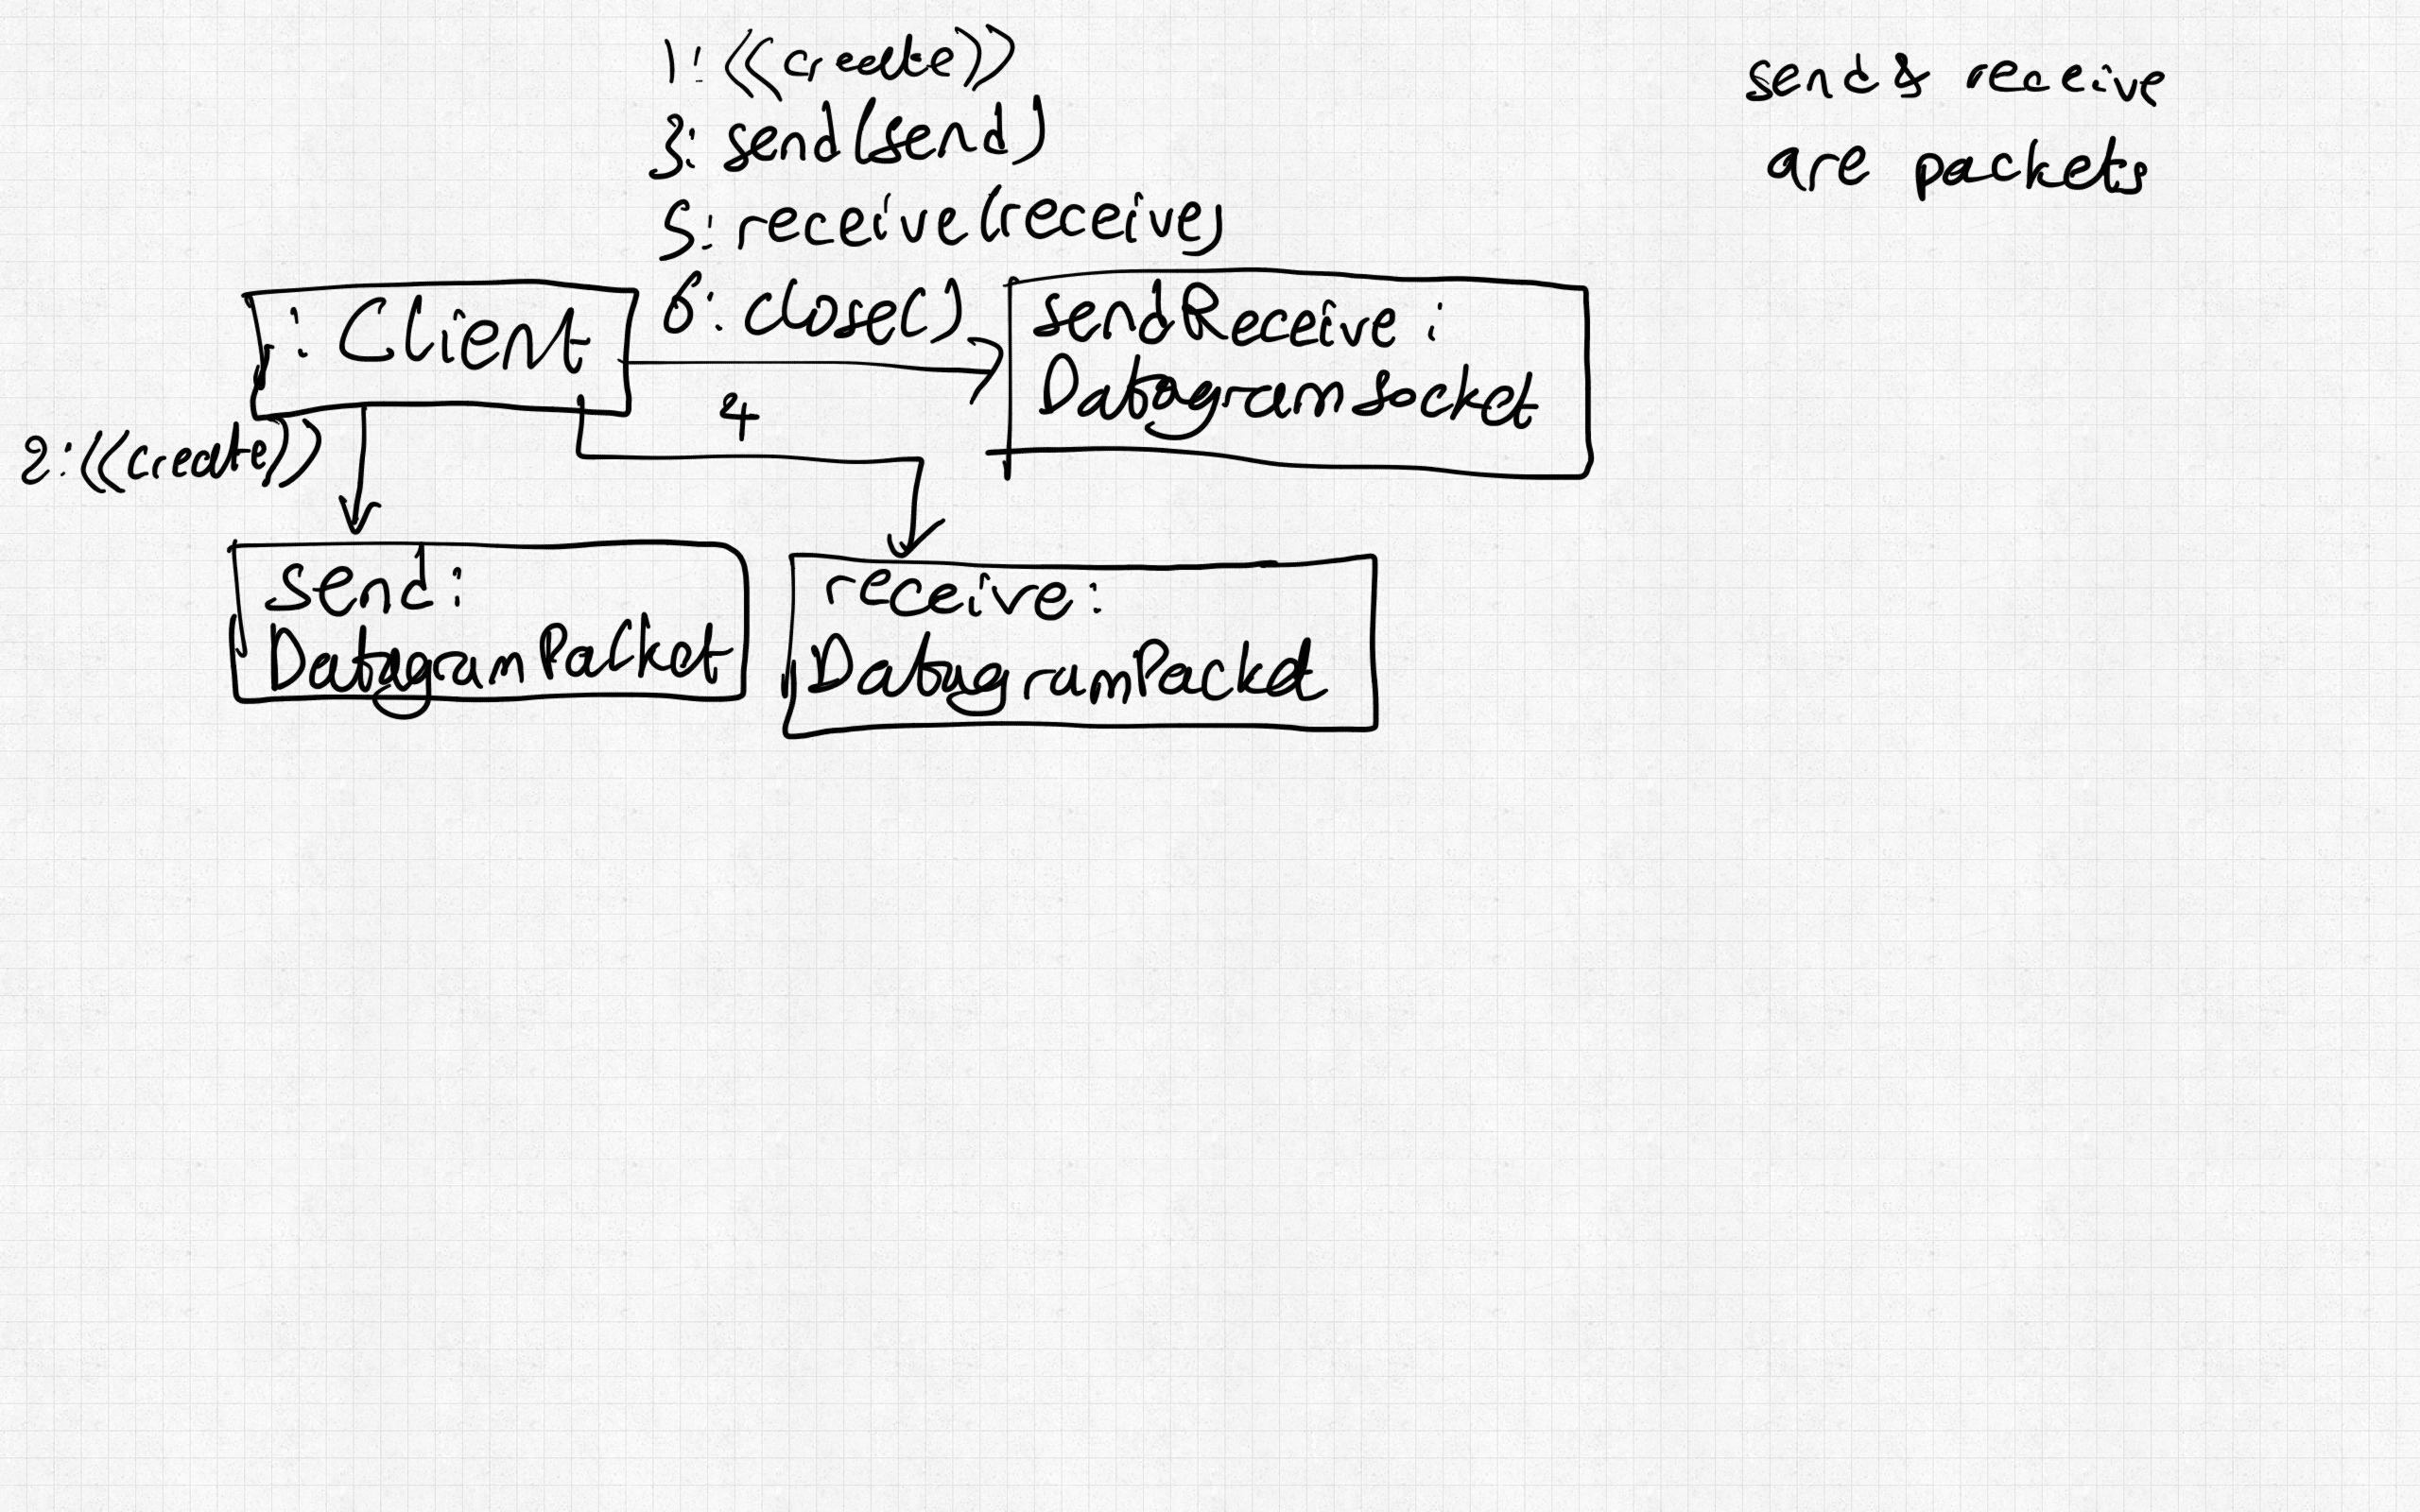 1: <<create>>
3: send(send)
5: receive(receive)
6: close()
send & receive
are packets
: Client
sendReceive :
DatagramSocket
4
2: <<create>>
send:
DatagramPacket
receive:
DatagramPacket